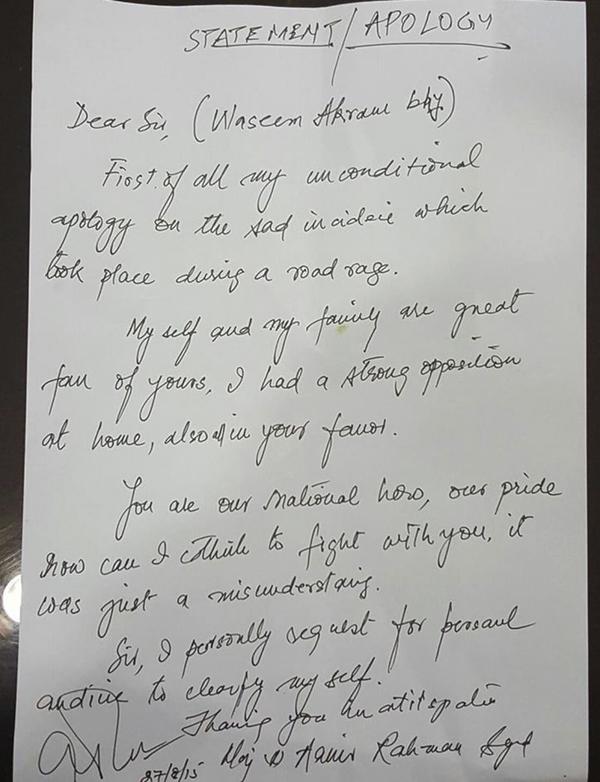 STATEMENT/APOLOGY
Dear Sir, (Waseem Akram bhy)
First of all my unconditional
apology on the sad incidie which
took place during a road rage.
My self and my faimly are great
fan of yours, I had a strong opposition
at home, also all in your favor.
You are our national hero, our pride
how can I think to fight with you, it
was just a misunderstaing.
Sir, I personally request for persanl
audine to clearfy my self.
Thaning you in antitispatin
27/8/15 Maj ® Aamir Rahman